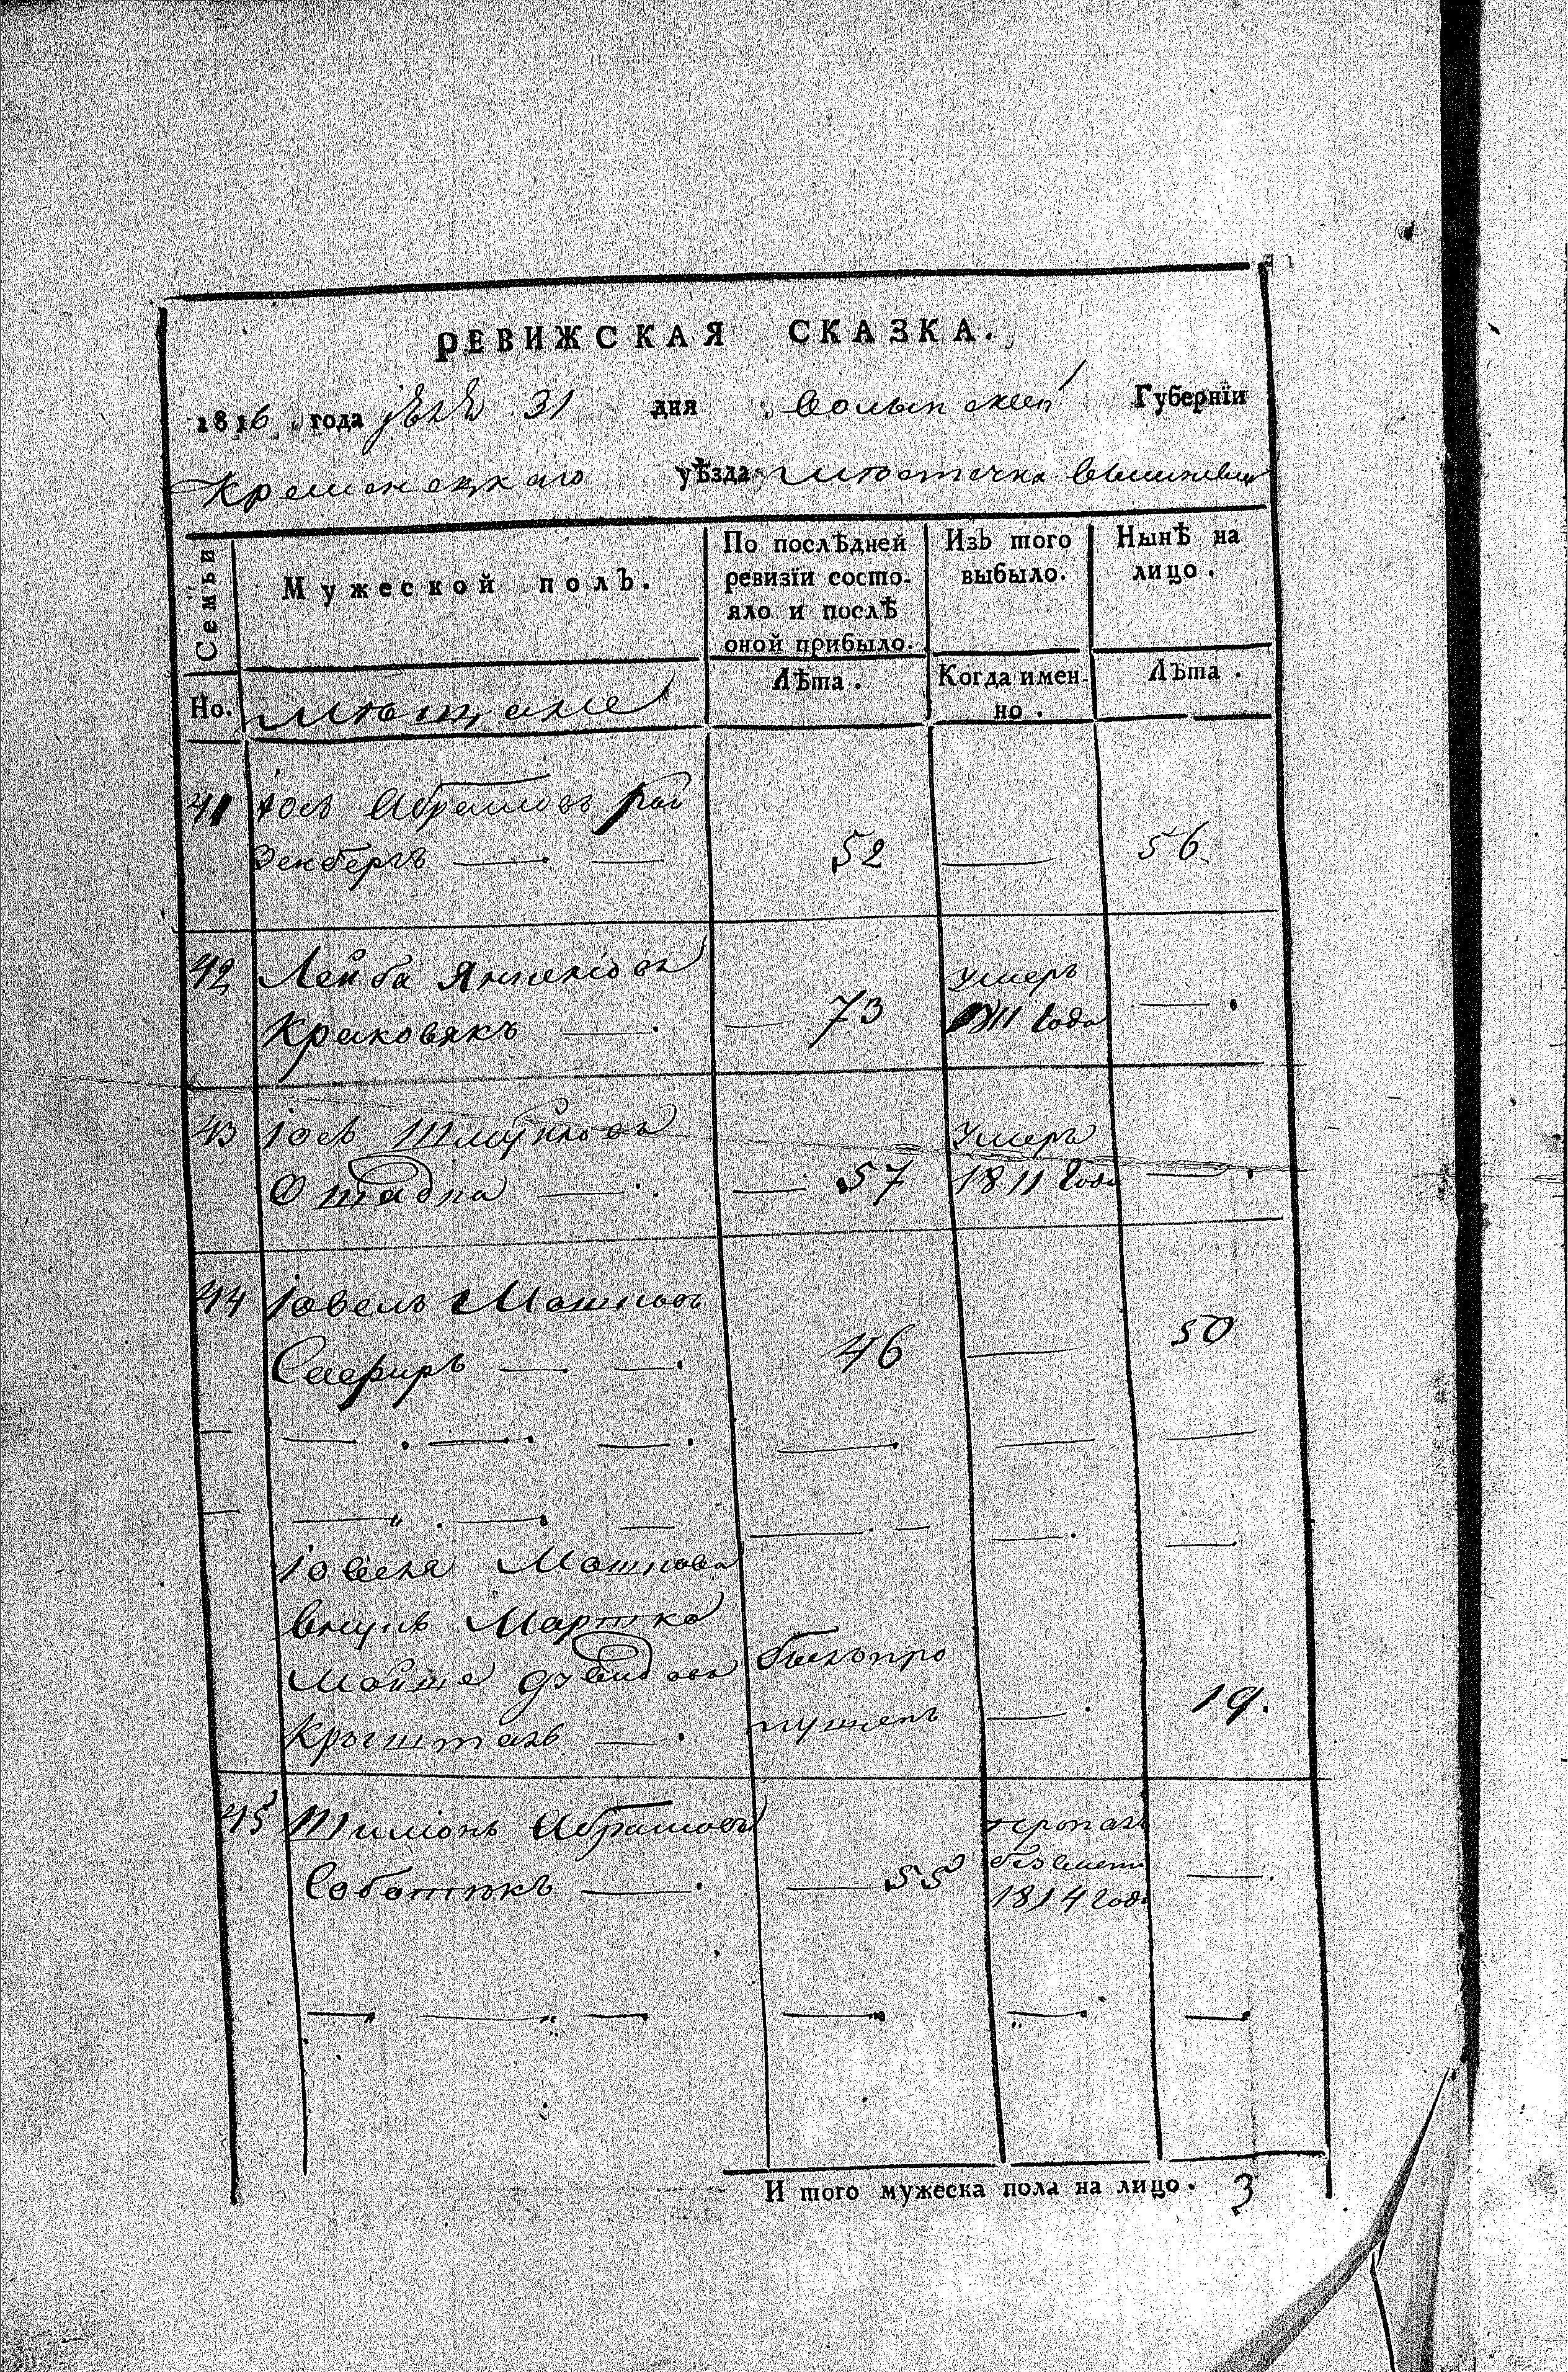 РЕВИЖСКАЯ СКАЗКА.
1816 года 31 дня Волынской Губернїи
Кременецкаго уѣзда местечка Вышневца
Семьи
Мужеской полъ.
По послѣдней
ревизїи состо-
яло и послѣ
оной прибыло.
Изъ того
выбыло.
Нынѣ на
лицо.
Но.
Лѣта.
Когда имен-
но.
Лѣта.
Мещане
41 Іось Абрамовъ Ро
Зенбергъ — — 52 — 56
42 Лейба Янкеліовъ
Краковякъ — — 73 умеръ 1811 года — .
43 Іось Шмуйловъ
— — 57 Умеръ 1811 года — .
44 Іовель Мошковъ
Сафиръ — — 46 — 50
Іовеля Мошкова
внукъ Мортко
Мойше Давидовъ былъ про
Крыштал — пущенъ — 19.
45 Шиміонъ Абрамовъ
Соботникъ — — 55 пропалъ
безвести
1814 года — .
И того мужеска пола на лицо. 3